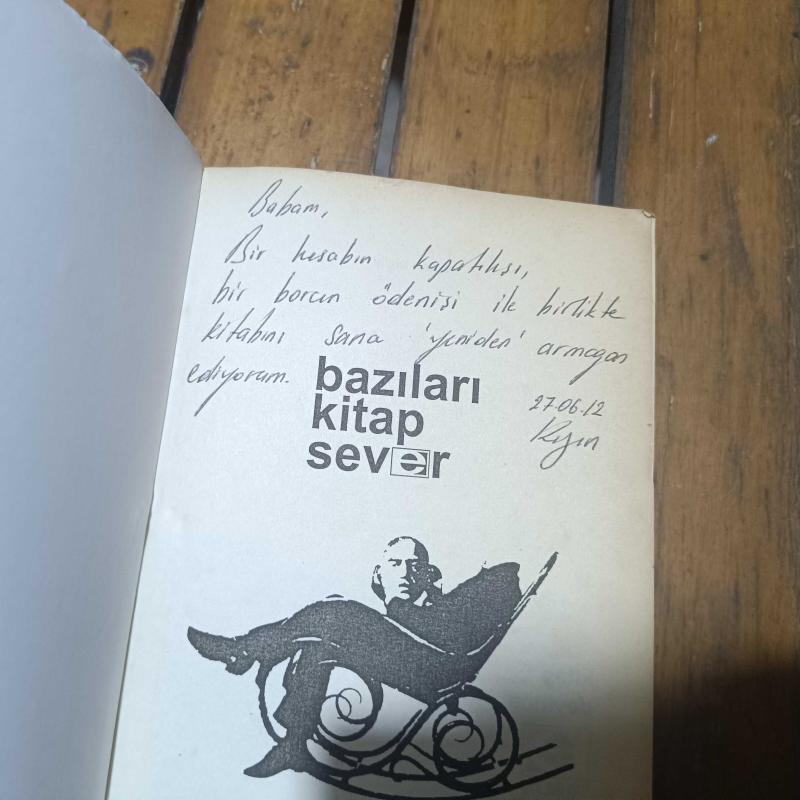 Babam,
Bir hesabın kapatılışı,
bir borcun ödenişi ile birlikte
kitabını sana 'yeniden' armağan
ediyorum.
27.06.12
bazıları
kitap
sever